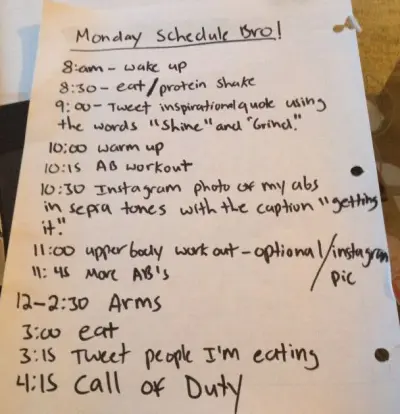 Monday Schedule Bro!
8:am - wake up
8:30 - eat/protein shake
9:00 - Tweet inspirational quote using
the words "Shine" and "Grind."
10:00 warm up
10:15 AB workout
10:30 Instagram photo of my abs
in sepra tones with the caption "getting
it."
11:00 upper body work out - optional/instagram
pic
11:45 More AB's
12-2:30 Arms
3:00 eat
3:15 Tweet people I'm eating
4:15 Call of Duty